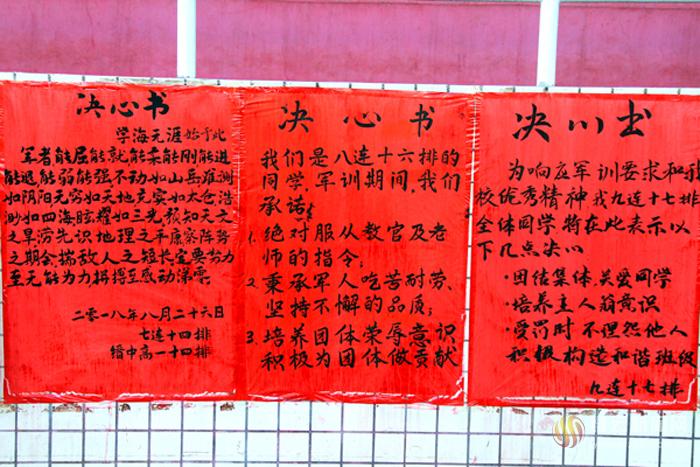 决心书
学海无涯始于此
军者能屈能就,能柔能刚能进
能退,能弱能强不动如山岳难测
如阴阳无穷如天地充实如太仓浩
渺如四海眩耀如三光预知天文
之旱涝先识地理之平康察阵势
之期会揣敌人之短长定要努力
至无能为力拼搏至感动涕零
二零一八年八月二十六日
七连十四排
缙中高一十四排
决心书
我们是八连十六排的
同学,军训期间,我们
承诺:
1. 绝对服从教官及老
师的指令;
2. 秉承军人吃苦耐劳、
坚持不懈的品质;
3. 培养团体荣辱意识
积极为团体做贡献
决心书
为响应军训要求和我
校优秀精神我九连十七排
全体同学将在此表示以
下几点决心
·团结集体,关爱同学
·培养主人翁意识
·受罚时不埋怨他人
积极构造和谐班级
九连十七排